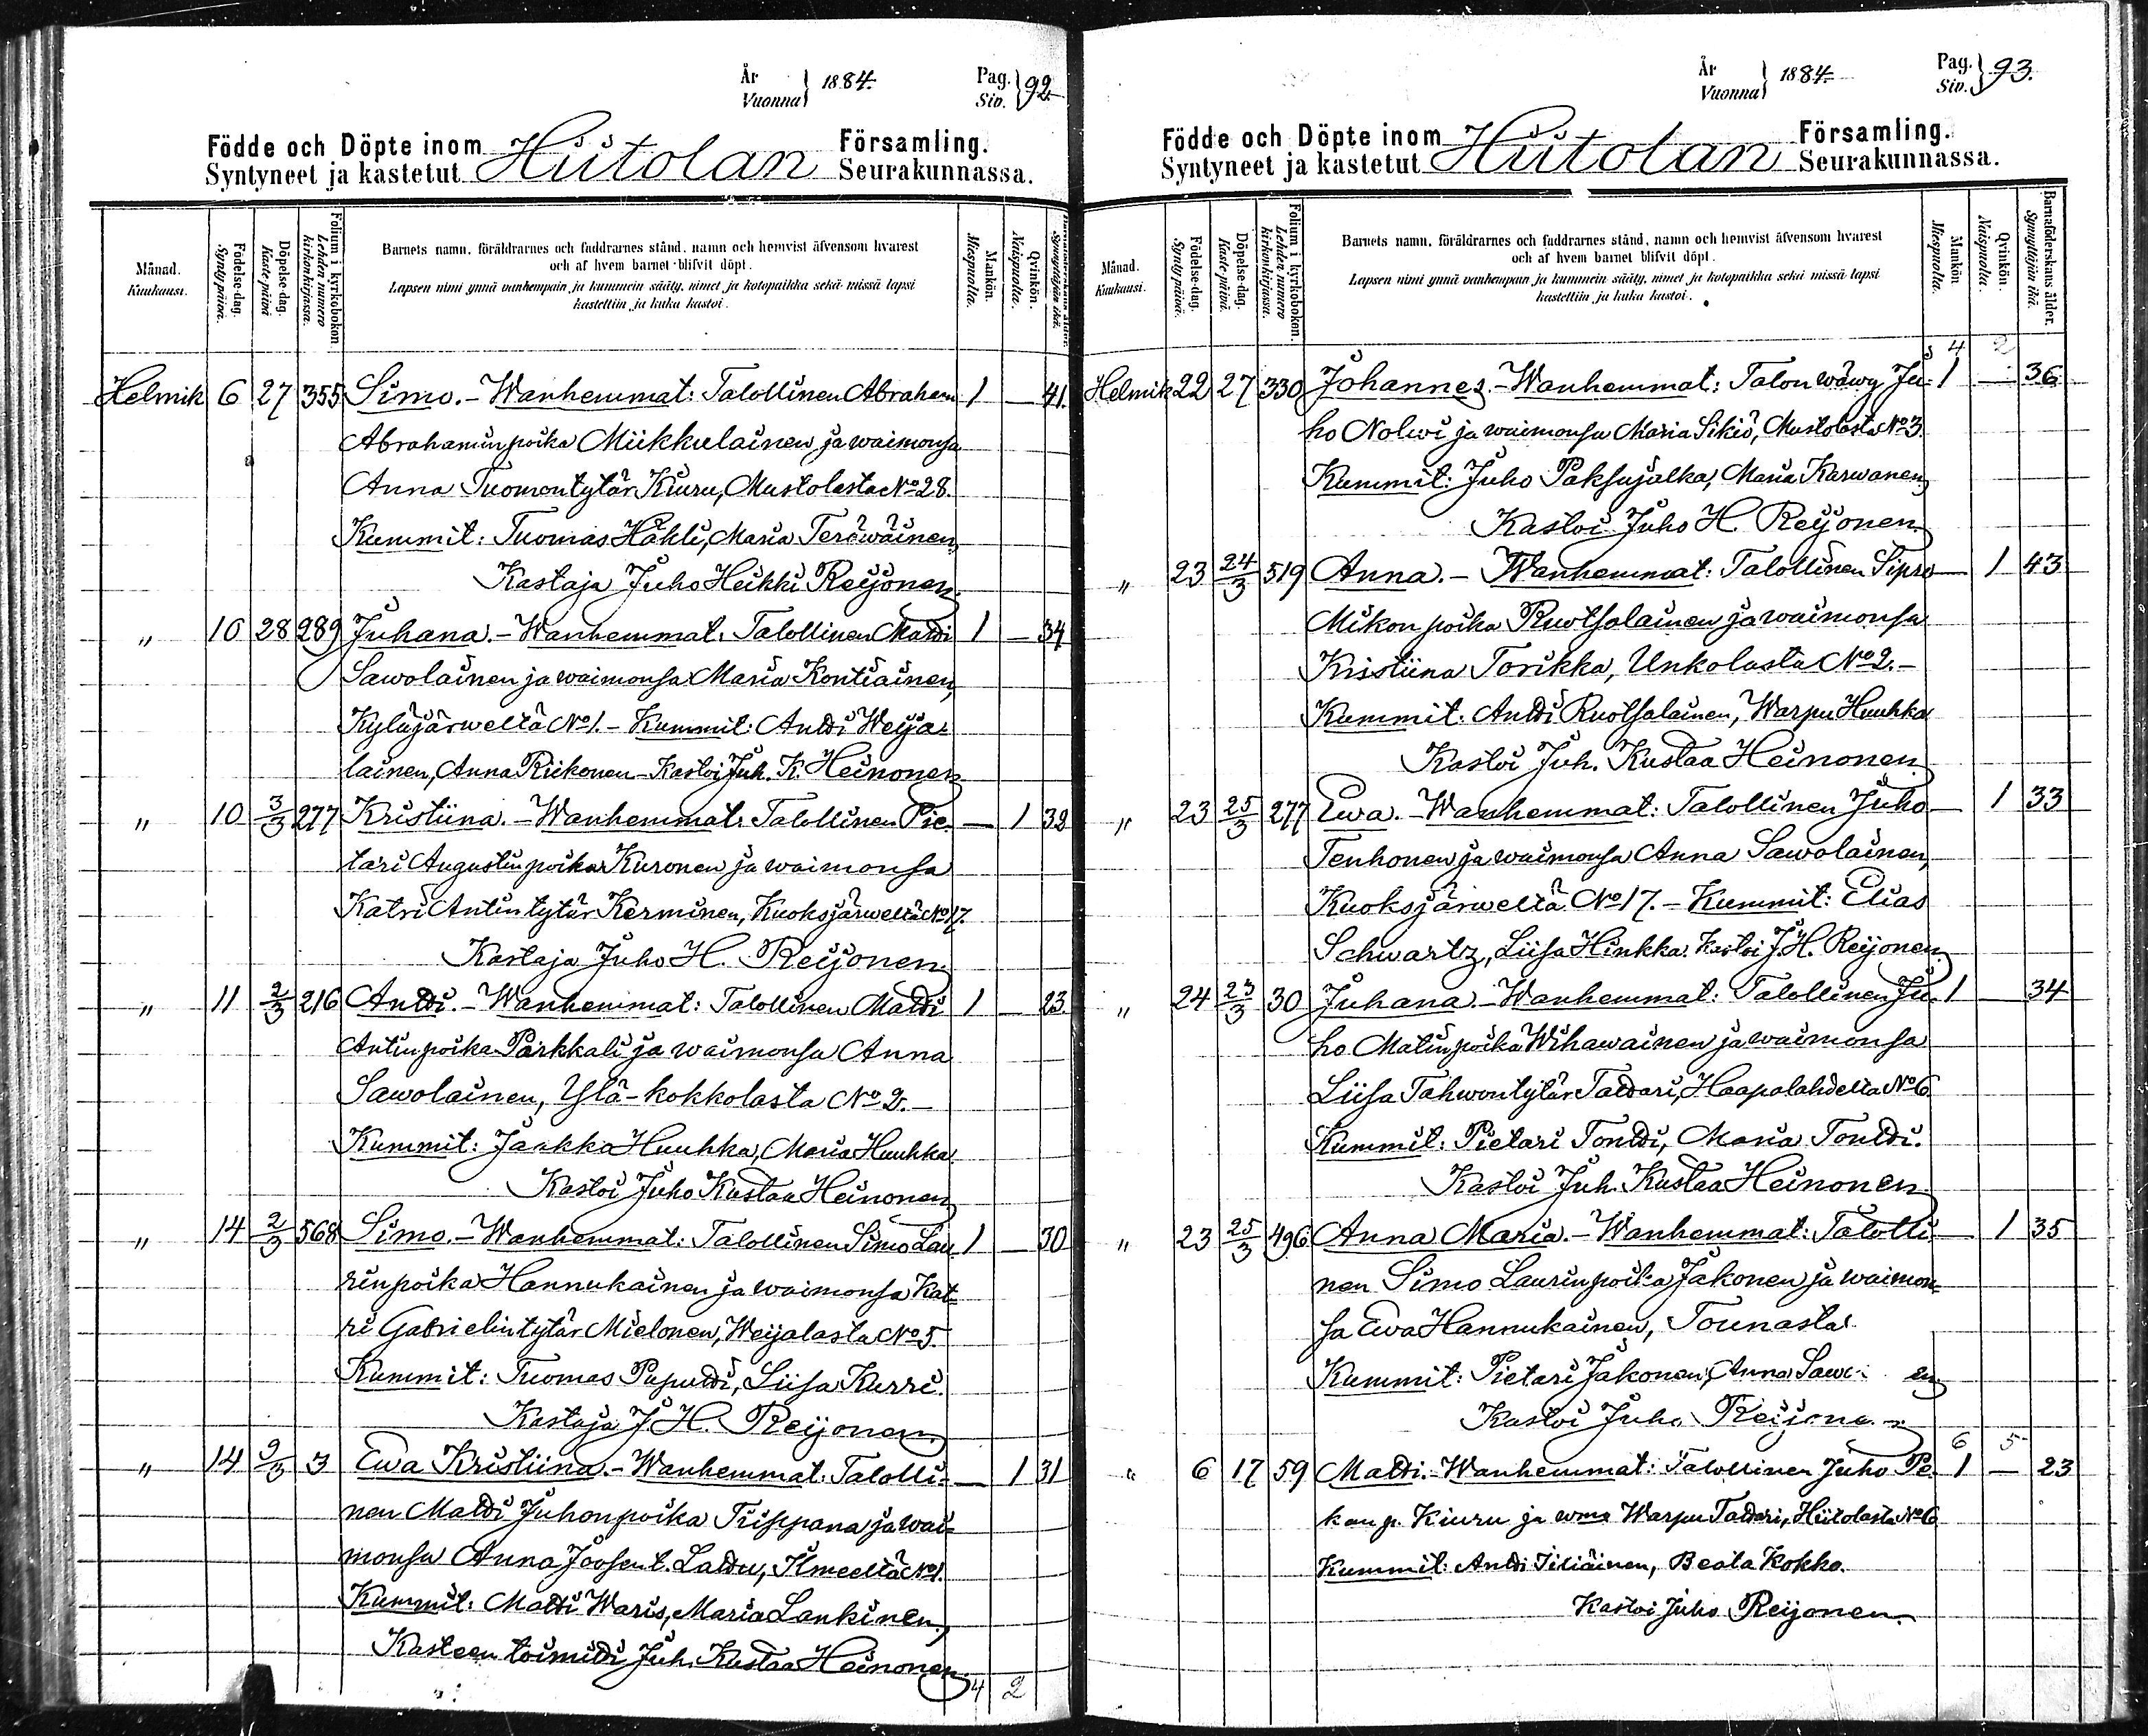 År
Vuonna } 1884.
Pag.
Siv. } 92.
Födde och Döpte inom Hiitolan Församling.
Syntyneet ja kastetut Seurakunnassa.
Månad.
Kuukausi.
Födelse-dag.
Syntypäivä.
Döpelse-dag.
Kaste-päivä
Folium i kyrkobokon.
Lehden numero
kirkonkirjassa.
Barnets namn, föräldrarnes och faddrarnes stånd, namn och hemvist äfvensom hvarest
och af hvem barnet blifvit döpt.
Lapsen nimi ynnä vanhempain ja kummein sääty, nimet ja kotopaikka sekä missä lapsi
kastettiin ja kuka kastoi.
Mankön.
Miespuolia.
Qvinkön.
Naispuolia.
Synnyttäjän ikä.
Helmik 6 27 355 Simo. - Wanhemmat: Talollinen Abraham 1 — 41.
Abrahaminpoika Miikkulainen ja waimonsa
Anna Tuomontytär Kiuru, Mustolasta No 28.
Kummit: Tuomas Häkli, Maria Teräwäinen,
Kastaja Juho Heikki Reijonen.
" 10 28 289 Juhana. - Wanhemmat: Talollinen Matti 1 — 34
Sawolainen ja waimonsa Maria Kontiainen,
Kyläjärweltä No 1. - Kummit: Antti Weija-
lainen, Anna Riikonen - Kastoi Juh. K. Heinonen
" 10 3/3 277 Kristiina. - Wanhemmat: Talollinen Pie- — 1 32
tari Augustinpoika Kuronen ja waimonsa
Katri Antintytär Kerminen, Kuoksjärweltä No 17.
Kastaja Juho H. Reijonen.
" 11 2/3 216 Antti. - Wanhemmat: Talollinen Matti 1 — 23.
Antinpoika Parkkali ja waimonsa Anna
Sawolainen, Ylä-kokkolasta No 2. -
Kummit: Jaakko Huuhka, Maria Huuhka.
Kastoi Juho Kustaa Heinonen
" 14 2/3 568 Simo. - Wanhemmat: Talollinen Simo Lau- 1 — 30
rinpoika Hannukainen ja waimonsa Kat-
ri Gabrielintytär Mielonen, Weijalasta No 5.
Kummit: Tuomas Puputti, Liisa Kurri.
Kastaja J H. Reijonen.
" 14 9/3 3 Ewa Kristiina. - Wanhemmat: Talolli- — 1 31
nen Matti Juhonpoika Trisppana ja wai-
monsa Anna Joosent. Lattu, Ilmeeltä No 1.
Kummit: Matti Waris, Maria Lankinen.
Kasteen toimitti Juh. Kustaa Heinonen.
4 2
År
Vuonna } 1884.
Pag.
Siv. } 93.
Födde och Döpte inom Hiitolan Församling.
Syntyneet ja kastetut Seurakunnassa.
Månad.
Kuukausi.
Födelse-dag.
Syntypäivä.
Döpelse-dag.
Kaste-päivä.
Folium i kyrkobokon.
Lehden numero
kirkonkirjassa.
Barnets namn, föräldrarnes och faddrarnes stånd, namn och hemvist äfvensom hvarest
och af hvem barnet blifvit döpt.
Lapsen nimi ynnä vanhempain ja kummein sääty, nimet ja kotopaikka sekä missä lapsi
kastettiin ja kuka kastoi.
Mankön
Miespuolia.
Qvinkön.
Naispuolia.
Barnaföderskans ålder.
Synnyttäjän ikä.
4 2
Helmik 22 27 330 Johannes. - Wanhemmat: Talon wäwy Ju- 1 — 36
ho Nolwi ja waimonsa Maria Sikiö, Mustolasta No 3.
Kummit: Juho Paksujalka, Maria Karwanen,
Kastoi Juho H. Reijonen
" 23 24/3 519 Anna. - Wanhemmat: Talollinen Sipro — 1 43
Mikonpoika Ruotsalainen ja waimonsa
Kristiina Torikka, Unkolasta No 2. -
Kummit: Antti Ruotsalainen, Warpu Huuhka
Kastoi Juh. Kustaa Heinonen
" 23 25/3 277 Ewa. - Wanhemmat: Talollinen Juho — 1 33
Tenhonen ja waimonsa Anna Sawolainen,
Kuoksjärweltä No 17. - Kummit: Elias
Schwartz, Liisa Hinkka. Kastoi J. H. Reijonen.
" 24 23/3 30 Juhana. - Wanhemmat: Talollinen Ju- 1 — 34
ho Matinpoika Wihawainen ja waimonsa
Liisa Tahwontytär Tattari, Haapalahdelta No 6
Kummit: Pietari Tontti, Maria Tontti.
Kastoi Juh. Kustaa Heinonen
" 23 25/3 496 Anna Maria. - Wanhemmat: Talolli- — 1 35
nen Simo Laurinpoika Jakonen ja waimon-
sa Ewa Hannukainen, Tounasta.
Kummit: Pietari Jakonen, Anna
Kastoi Juho Reijonen
6 5
" 6 17 59 Matti. - Wanhemmat: Talollinen Juho Pe- 1 — 23
kan p. Kiuru ja wma Warpu Tattari, Hiitolasta No 6
Kummit: Antti Iiliäinen, Beata Kokko.
Kastoi Juho Reijonen.